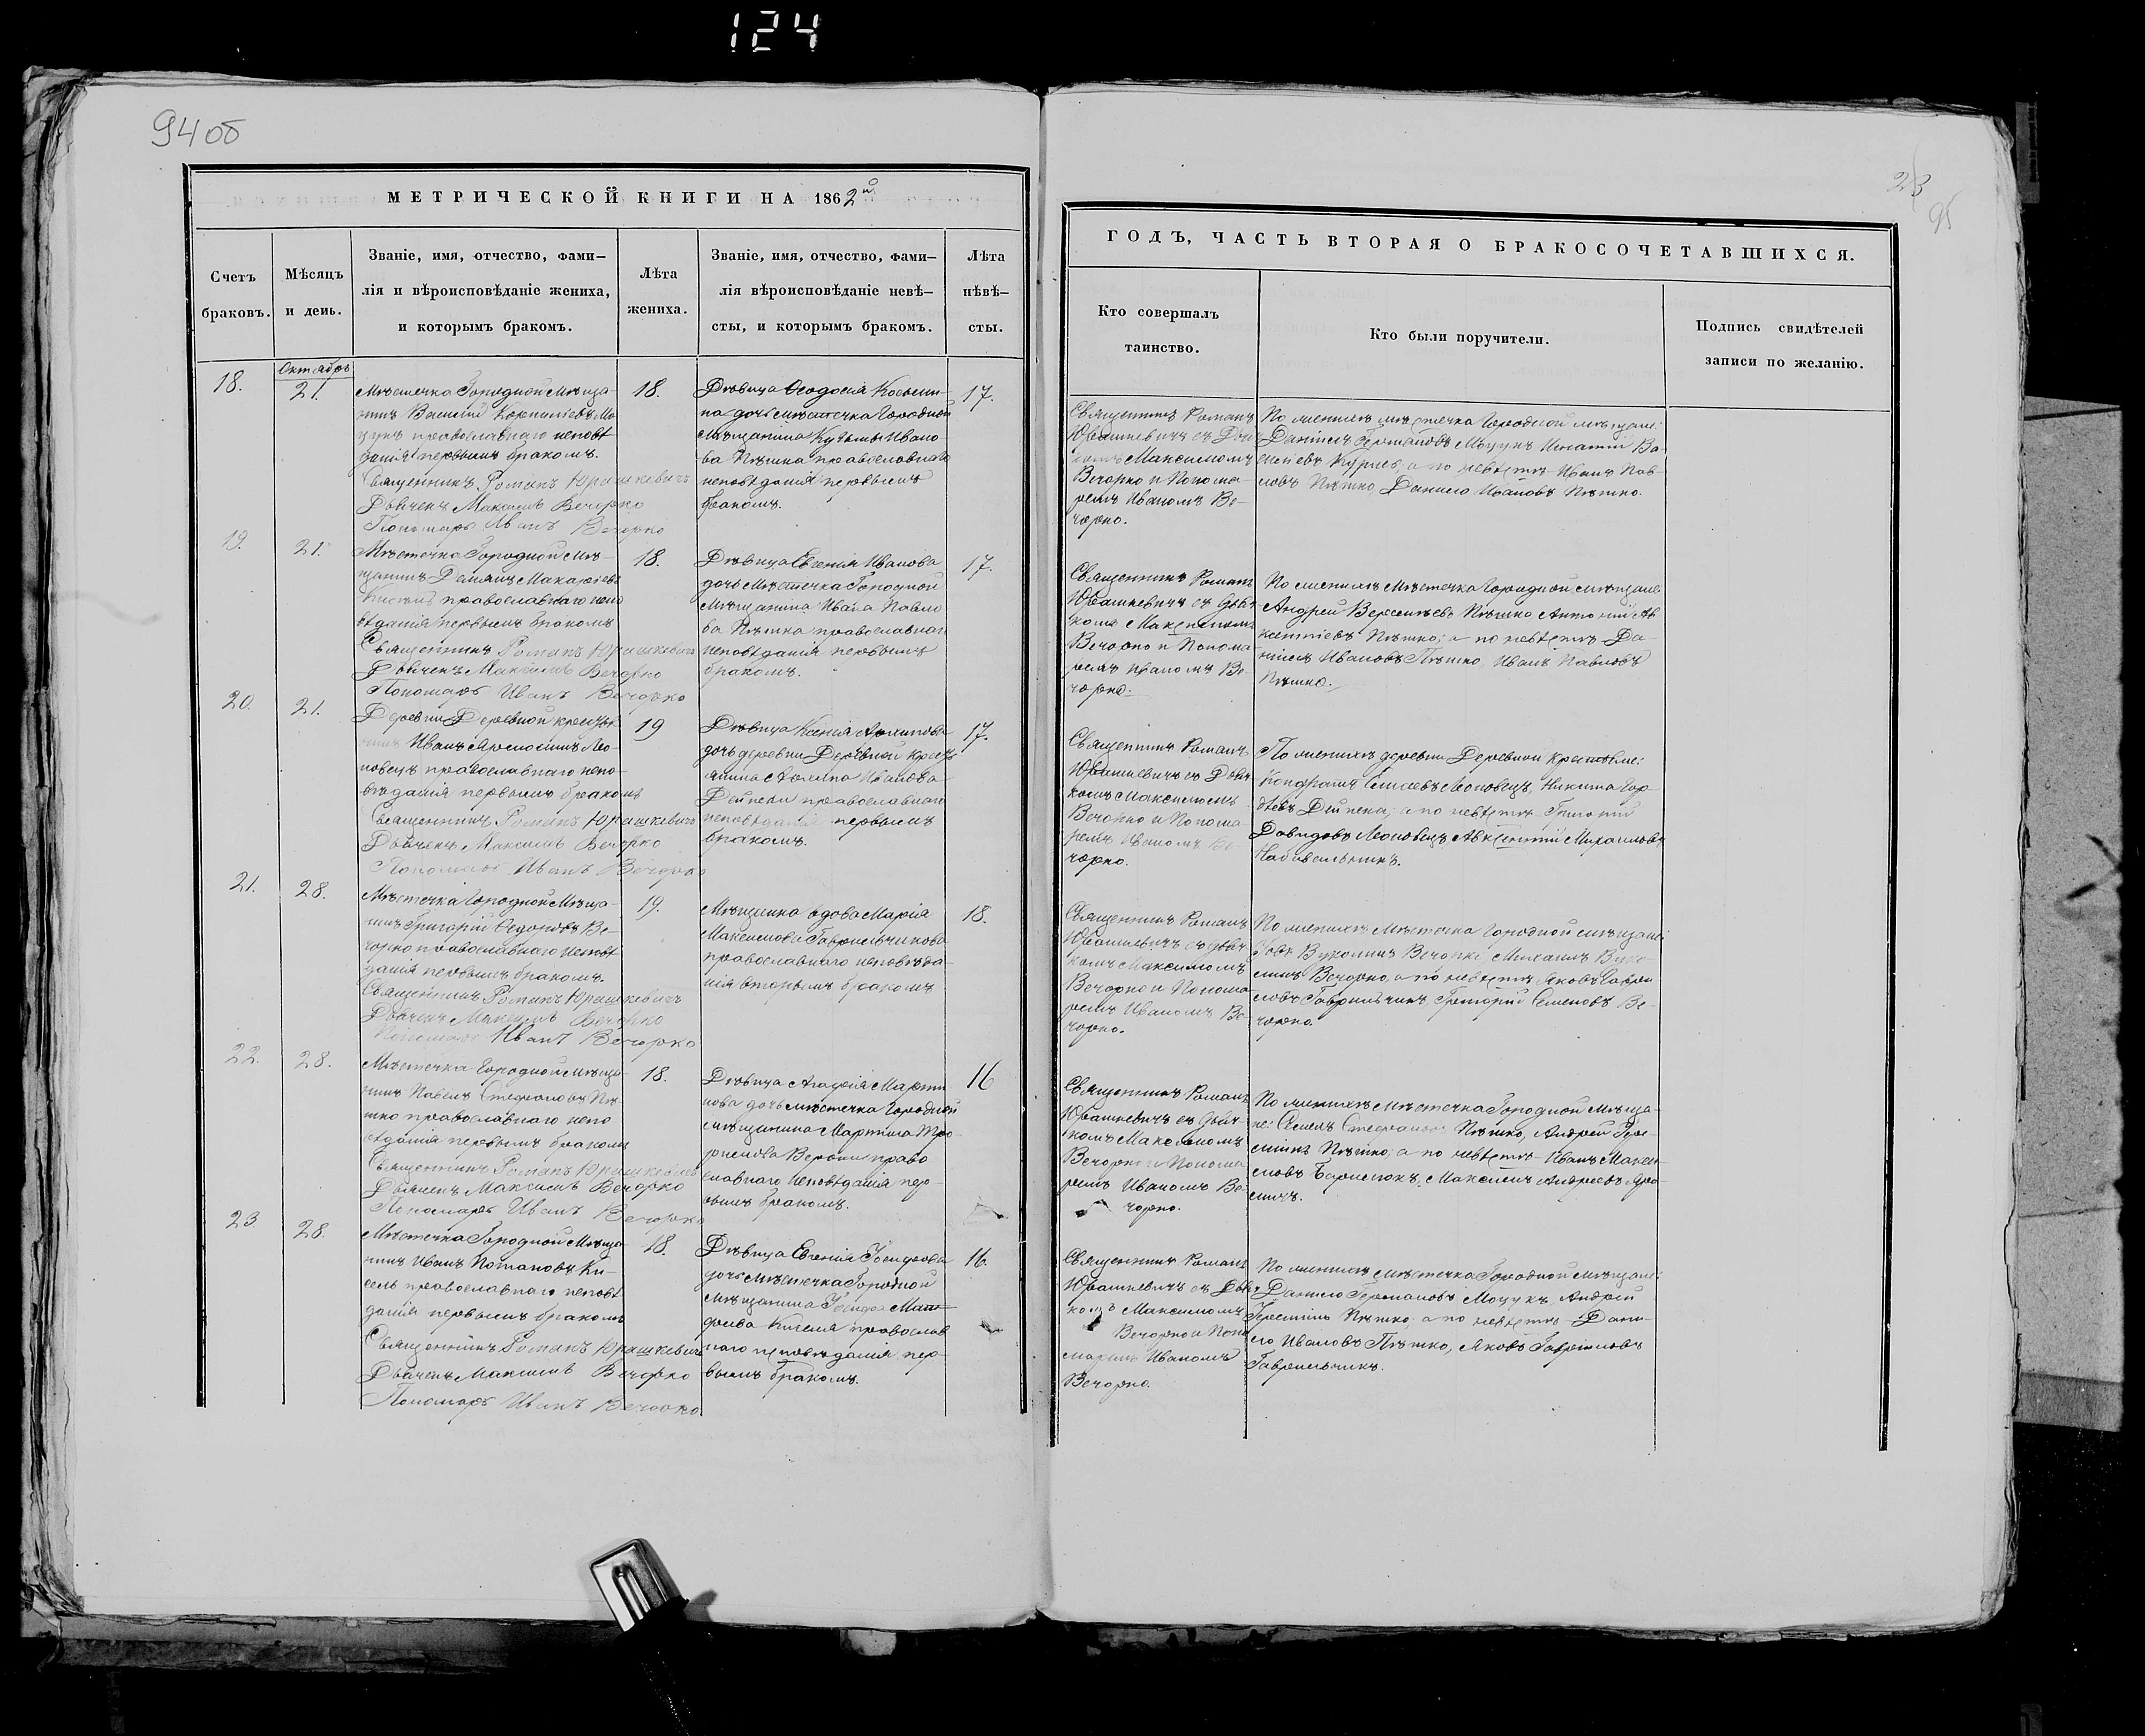 124
94 об
23
95
МЕТРИЧЕСКОЙ КНИГИ НА 1862й
ГОДЪ, ЧАСТЬ ВТОРАЯ О БРАКОСОЧЕТАВШИХСЯ.
Счетъ
браковъ.
Мѣсяцъ
и день.
Званіе, имя, отчество, фами—
лія и вѣроисповѣданіе жениха,
и которымъ бракомъ.
Лѣта
жениха.
Званіе, имя, отчество, фами—
лія вѣроисповѣданіе невѣ—
сты, и которымъ бракомъ.
Лѣта
нѣвѣ—
сты.
Кто совершалъ
таинство.
Кто были поручители.
Подпись свидѣтелей
записи по желанію.
Октябрь
18.
21.
Мѣстечка Городной мѣща-
нинъ Василій
православнаго исповѣ
данія первымъ бракомъ.
Священникъ Романъ Юрашкевичъ
Дьячекъ Максимъ Вечорко
Пономарь Иванъ Вечорко
18.
Дѣвица Ѳеодосія
дочь мѣстечка Городной
мѣщанина Кузьмы Ивано-
ва Пѣшка православнаго
исповѣданія первымъ
бракомъ.
17.
Священникъ Романъ
Юрашкевичъ съ
Максимомъ
Вечорко и Понома-
ремъ Иваномъ Ве-
чорко.
По женихѣ мѣстечка Городной мѣщане:
Даніилъ Германовъ Моцукъ Игнатій Ва
а по невѣстѣ Иванъ Пав-
ловъ Пѣшко Данило Ивановъ Пѣшко.
19.
21.
Мѣстечка Городной Мѣ-
щанинъ Демянъ Макаріевъ
православнаго испо
вѣданія первымъ бракомъ
Священникъ Романъ Юрашкевичъ
Дьячекъ Максимъ Вечорко
Пономарь Иванъ Вечорко
18.
Дѣвица Евгенія Иванова
дочь Мѣстечка Городной
Мѣщанина Ивана Павло
ва Пѣшка православнаго
исповѣданія первымъ
бракомъ.
17.
Священникъ Романъ
Юрашкевичъ съ Дьяч
комъ Максимомъ
Вечорко и Понома
ремъ Иваномъ Ве-
чорко.
По женихѣ Мѣстечка Городной мѣщане
Андрей Пѣшко Антоній Ав
ксентіевъ Пѣшко; а по невѣстѣ Да-
ніилъ Ивановъ Пѣшко, Иванъ Павловъ
Пѣшко.
20.
21.
Деревни Деревной крестья
нинъ Иванъ Лео-
новецъ православнаго испо-
вѣданія первымъ бракомъ
Священникъ Романъ Юрашкевичъ
Дьячекъ Максимъ Вечорко
Пономарь Иванъ Вечорко
19
Дѣвица Ксенія Архипова
дочь деревни Деревной Кресть
янина Архипа Иванова
Дейнеки православнаго
исповѣданія первымъ
бракомъ.
17.
Священникъ Романъ
Юрашкевичъ съ Дьяч
комъ Максимомъ
Вечорко и Понома
ремъ Иваномъ Ве-
чорко.
По женихѣ деревни Деревной Крестьяне:
Кондратъ Елисеевъ Леоновецъ, Никита Гор-
дѣевъ Дейнека; а по невѣстѣ Григорій
Давидовъ Леоновецъ, Авксентій Михайловъ
21.
28.
Мѣстечка Городной Мѣща-
нинъ Григорій Ѳедоровъ Ве-
чорко православнаго исповѣ
данія первымъ бракомъ.
Священникъ Романъ Юрашкевичъ
Дьячекъ Максимъ Вечорко
Пономарь Иванъ Вечорко
19.
Мѣщанка вдова Марія
Максимова Гаврильчикова
православнаго исповѣда-
нія вторымъ бракомъ
18.
Священникъ Романъ
Юрашкевичъ съ дьяч
комъ Максимомъ
Вечорко и Понома
ремъ Иваномъ Ве-
чорко.
По женихѣ Мѣстечка Городной мѣщане:
Вечорко, Михаилъ
Вечорко, а по невѣстѣ Яковъ Гаври
ловъ Гаврильчикъ, Григорій Семеновъ Ве-
чорко.
22.
28.
Мѣстечка Городной мѣща-
нинъ Павелъ Стефановъ Пѣ-
шко православнаго испо
вѣданія первымъ бракомъ
Священникъ Романъ Юрашкевичъ
Дьячекъ Максимъ Вечорко
Пономарь Иванъ Вечорко
18.
Дѣвица Агафія Марти
нова дочь мѣстечка Городной
мѣщанина Мартина Тро-
право
славнаго исповѣданія пер-
вымъ бракомъ.
16
Священникъ Романъ
Юрашкевичъ съ дьяч-
комъ Максимомъ
Вечорко и Понома
ремъ Иваномъ Ве-
чорко.
По женихѣ Мѣстечка Городной мѣща-
не: Семенъ Стефановъ Пѣшко, Андрей Гера-
симъ Пѣшко; а по невѣстѣ Иванъ Макси-
мовъ Максимъ Андреевъ
23
28.
Мѣстечка Городной Мѣща-
нинъ Иванъ Потаповъ Ки-
сель православнаго исповѣ
данія первымъ бракомъ
Священникъ Романъ Юрашкевичъ
Дьячекъ Максимъ Вечорко
Пономарь Иванъ Вечорко
18.
Дѣвица Евгенія
дочь мѣстечка Городной
мѣщанина
православ
наго исповѣданія пер-
вымъ бракомъ.
16.
Священникъ Романъ
Юрашкевичъ съ Дьяч
комъ Максимомъ
Вечорко и Поно
маремъ Иваномъ
Вечорко.
По женихѣ мѣстечка Городной мѣщане:
Данило Германовъ Моцукъ, Андрей
Пѣшко; а по невѣстѣ Дани-
ло Ивановъ Пѣшко, Яковъ Гавриловъ
Гаврильчикъ.